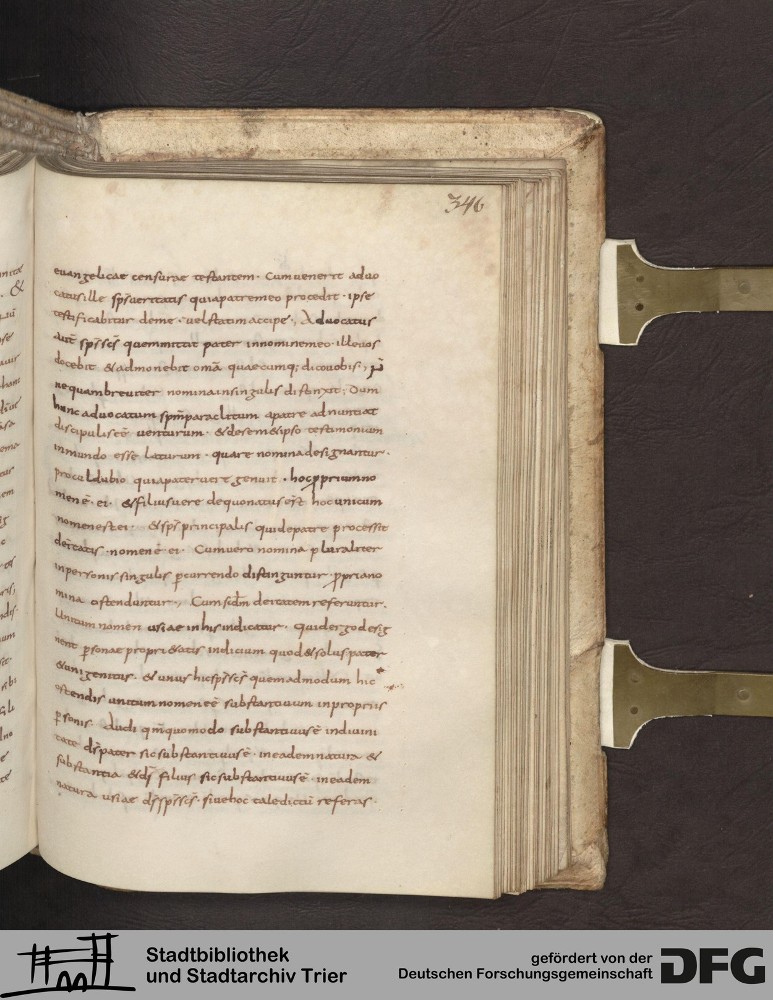 346
euangelicae censurae testantem. Cum uenerit aduo
catus ille sps ueritatis quia patre meo procedit. ipse
testificabitur de me. uel statim accipe., Aduocatus
aut sps scs quem mittit pater in nomine meo. ille uos
docebit & admonebit omā quaecumq; dico uobis;
nequam breuiter nomina in singulis distinxit; Dum
hunc aduocatum spm paraclitum a patre adnuntiat
discipulis eē uenturum. & de sem&ipso testimonium
in mundo esse laturum. quare nomina designantur.
procul dubio quia pater uere genuit. hoc pprium no
men ē. ei. & filius uere de quo natus est hoc unicum
nomen est ei. & sps principalis qui de patre processit
deitatis. nomen ē ei. Cum uero nomina pluraliter
in personis singulis pcurrendo distinguntur ppria no
mina ostenduntur., Cum scdm deitatem referuntur.
Unitum nomen usiae in his indicatur. Quid ergo desig
nent psonae propri&atis indicium quod & solus pater
& unigenitus. & unus hic sps scs quemadmodum hic
ostendis unitum nomen eē substantiuum in propriis
psonis. Audi qm quomodo substantiuus ē in diuini
tate ds pater sic substantiuus ē. in eadem natura &
substantia & ds filius sic substantiuus ē. in eadem
natura usiae ds sps scs. siue hoc tale dictū referas.
Stadtbibliothek
und Stadtarchiv Trier
gefördert von der
Deutschen Forschungsgemeinschaft
DFG